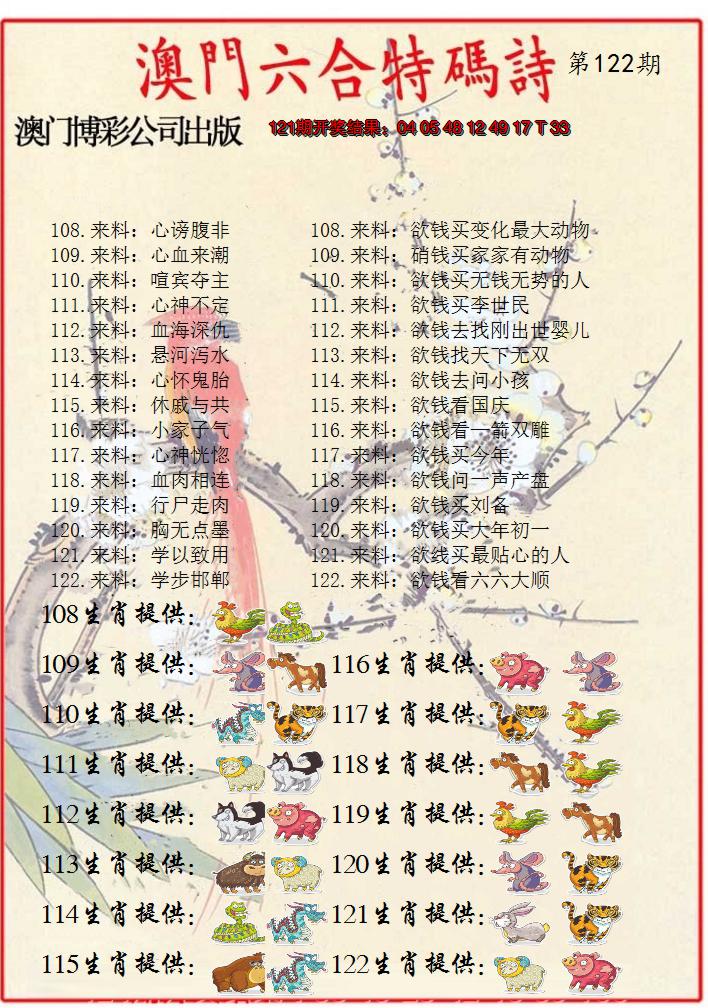 澳門六合特碼詩 第122期
澳门博彩公司出版 121期开奖结果：04 05 48 12 49 17 T 33
108.来料：心谤腹非 108.来料：欲钱买变化最大动物
109.来料：心血来潮 109.来料：硝钱买家家有动物
110.来料：喧宾夺主 110.来料：欲钱买无钱无势的人
111.来料：心神不定 111.来料：欲钱买李世民
112.来料：血海深仇 112.来料：欲钱去找刚出世婴儿
113.来料：悬河泻水 113.来料：欲钱找天下无双
114.来料：心怀鬼胎 114.来料：欲钱去问小孩
115.来料：休戚与共 115.来料：欲钱看国庆
116.来料：小家子气 116.来料：欲钱看一箭双雕
117.来料：心神恍惚 117.来料：欲钱买今年
118.来料：血肉相连 118.来料：欲钱问一声产盘
119.来料：行尸走肉 119.来料：欲钱买刘备
120.来料：胸无点墨 120.来料：欲钱买大年初一
121.来料：学以致用 121.来料：欲线买最贴心的人
122.来料：学步邯郸 122.来料：欲钱看六六大顺
108生肖提供：
109生肖提供： 116生肖提供：
110生肖提供： 117生肖提供：
111生肖提供： 118生肖提供：
112生肖提供： 119生肖提供：
113生肖提供： 120生肖提供：
114生肖提供： 121生肖提供：
115生肖提供： 122生肖提供：